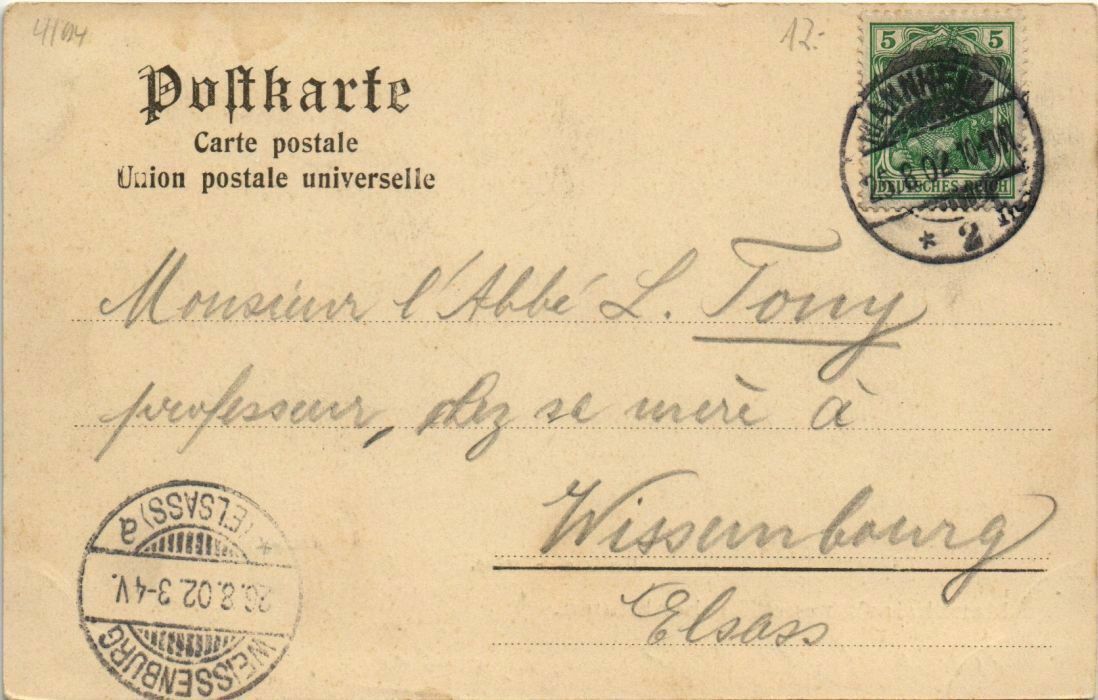 4/04
12.-
Postkarte
Carte postale
Union postale universelle
5 5
DEUTSCHES REICH
MANNHEIM
25.8.02. 10-11V.
* 2
Monsieur l'Abbé L. Tony
professeur, chez sa mère à
Wissembourg
Elsass
* (ELSASS) a
26.8.02. 3-4V.
WEISSENBURG